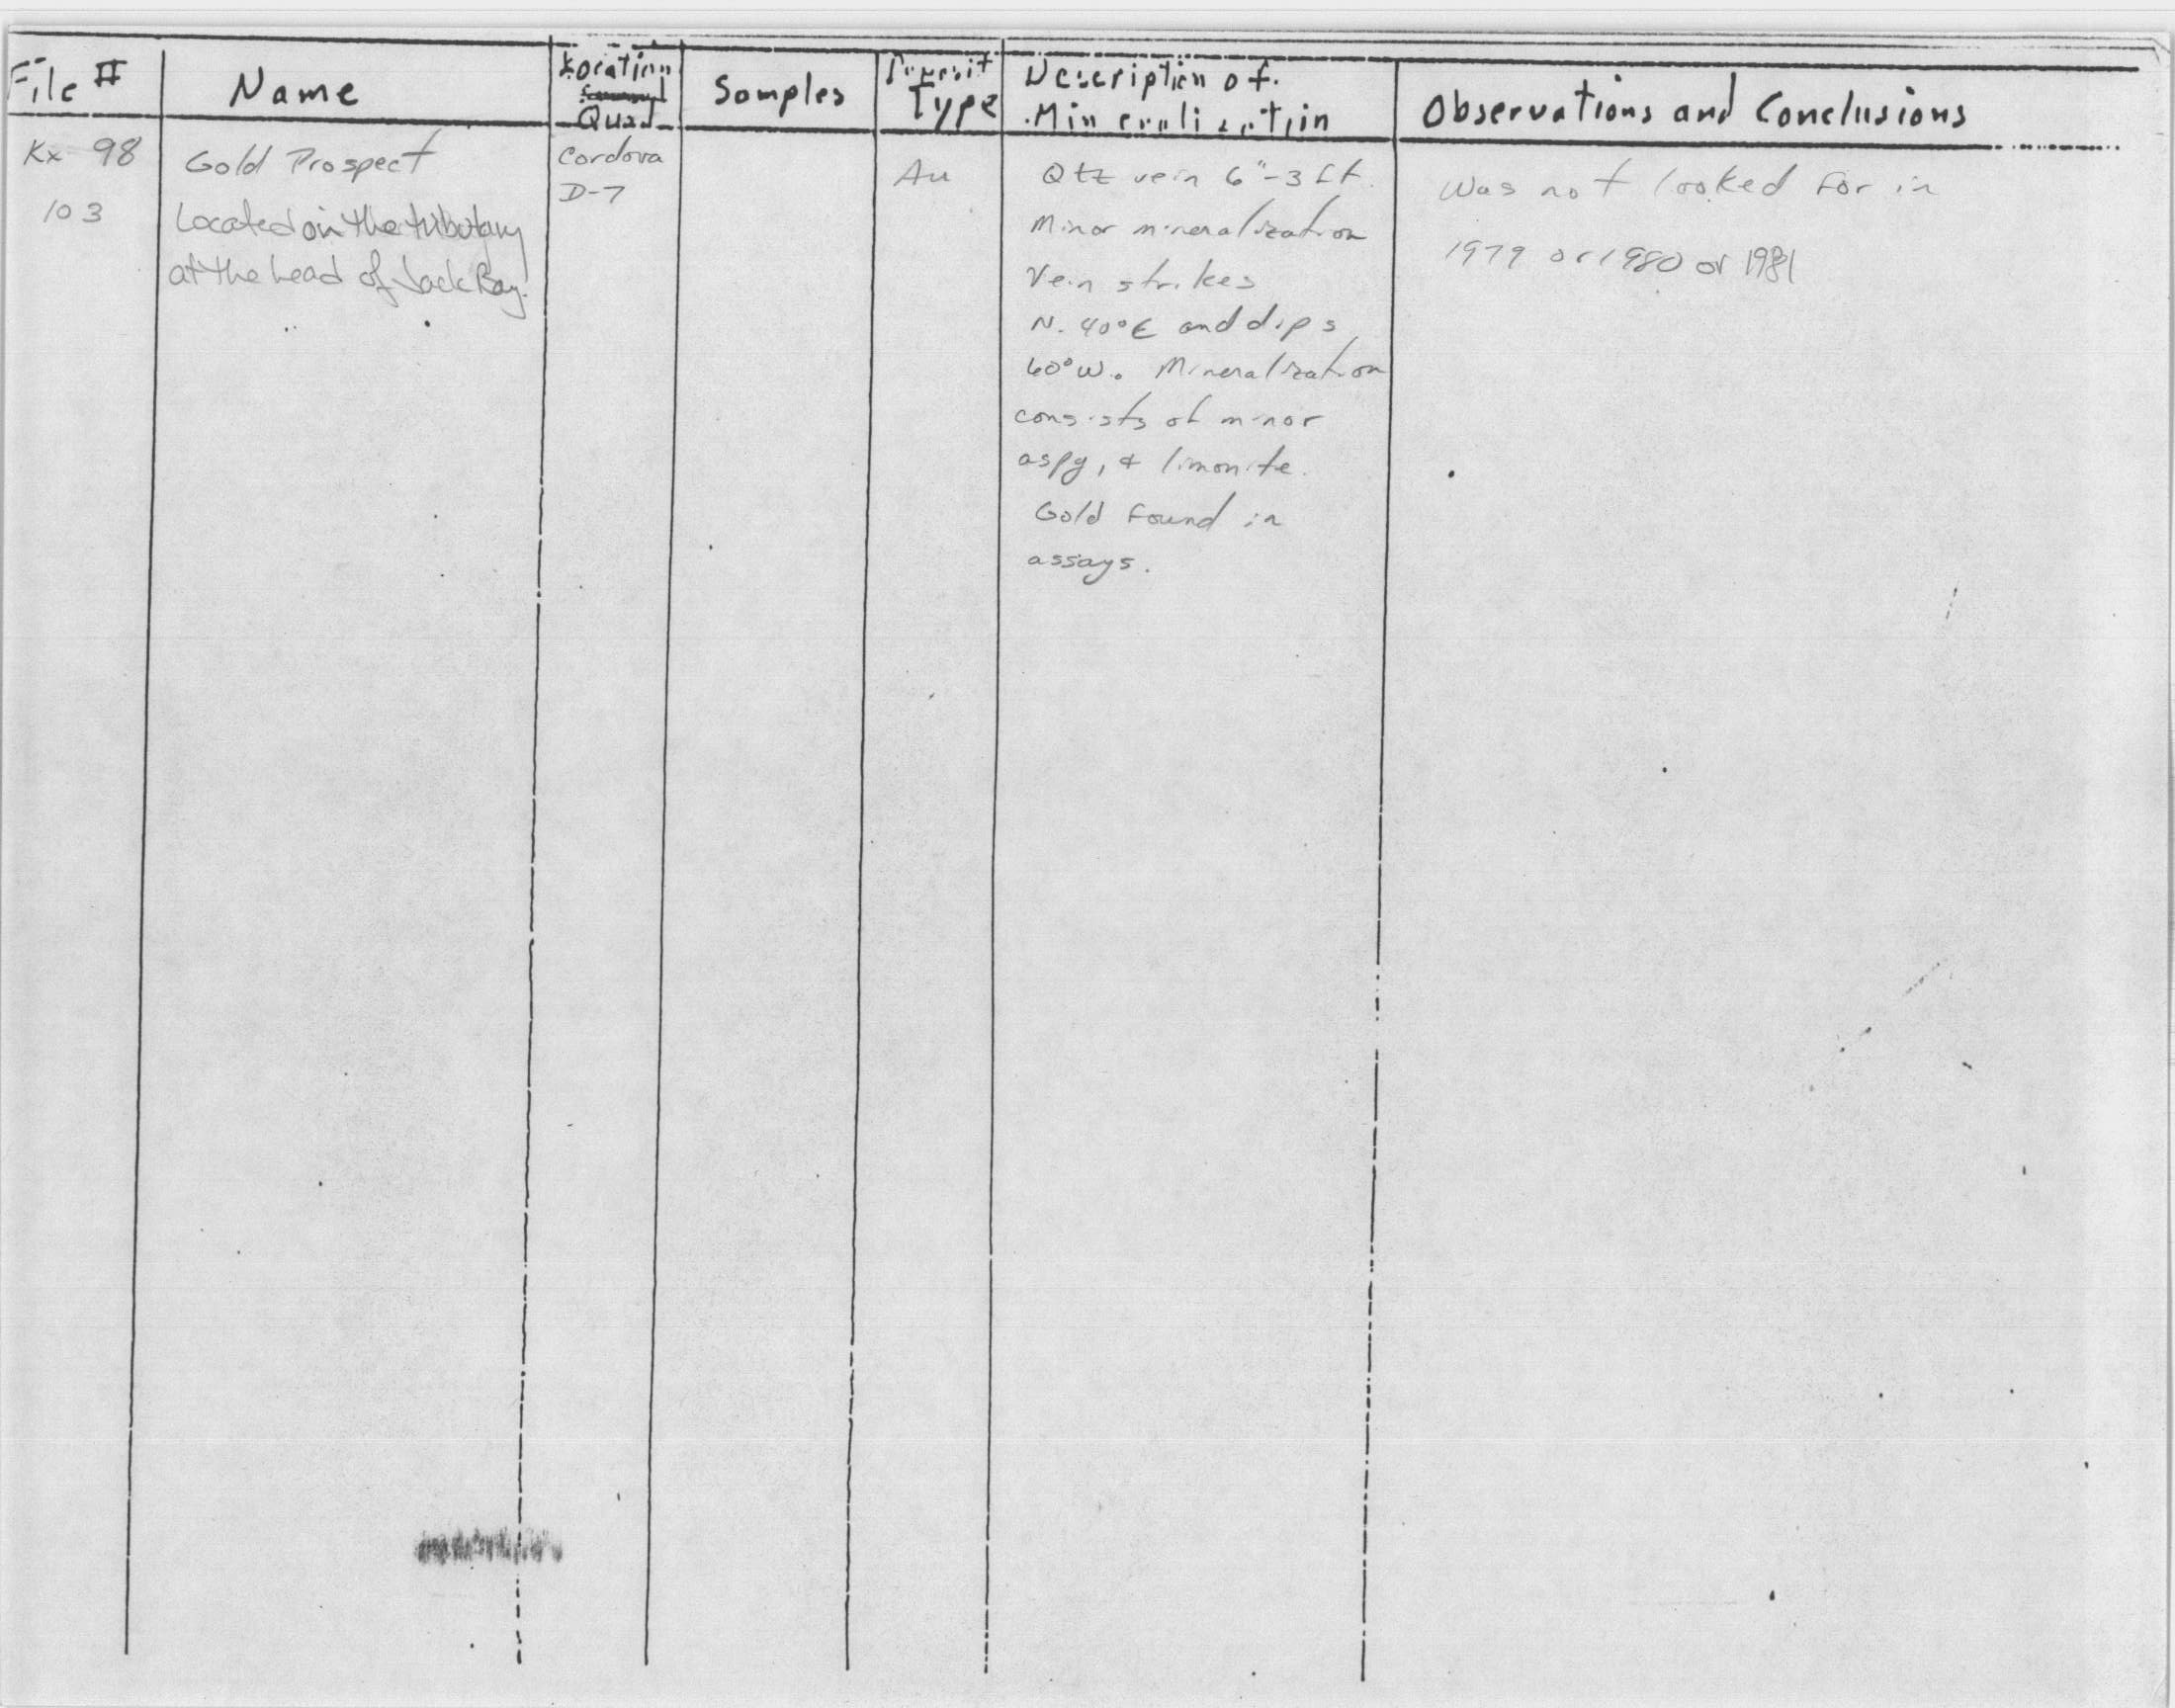 File # Name Location Quad Samples Deposit Type Description of Mineralization Observations and Conclusions
Kx 98
103
Gold Prospect
Located on the tributary
at the head of Jack Bay.
Cordova
D-7
Au
Qtz vein 6"-3 ft.
Minor mineralization
Vein strikes
N. 40°E and dips
60°W. Mineralization
consists of minor
aspy, & limonite.
Gold found in
assays.
Was not looked for in
1979 or 1980 or 1981